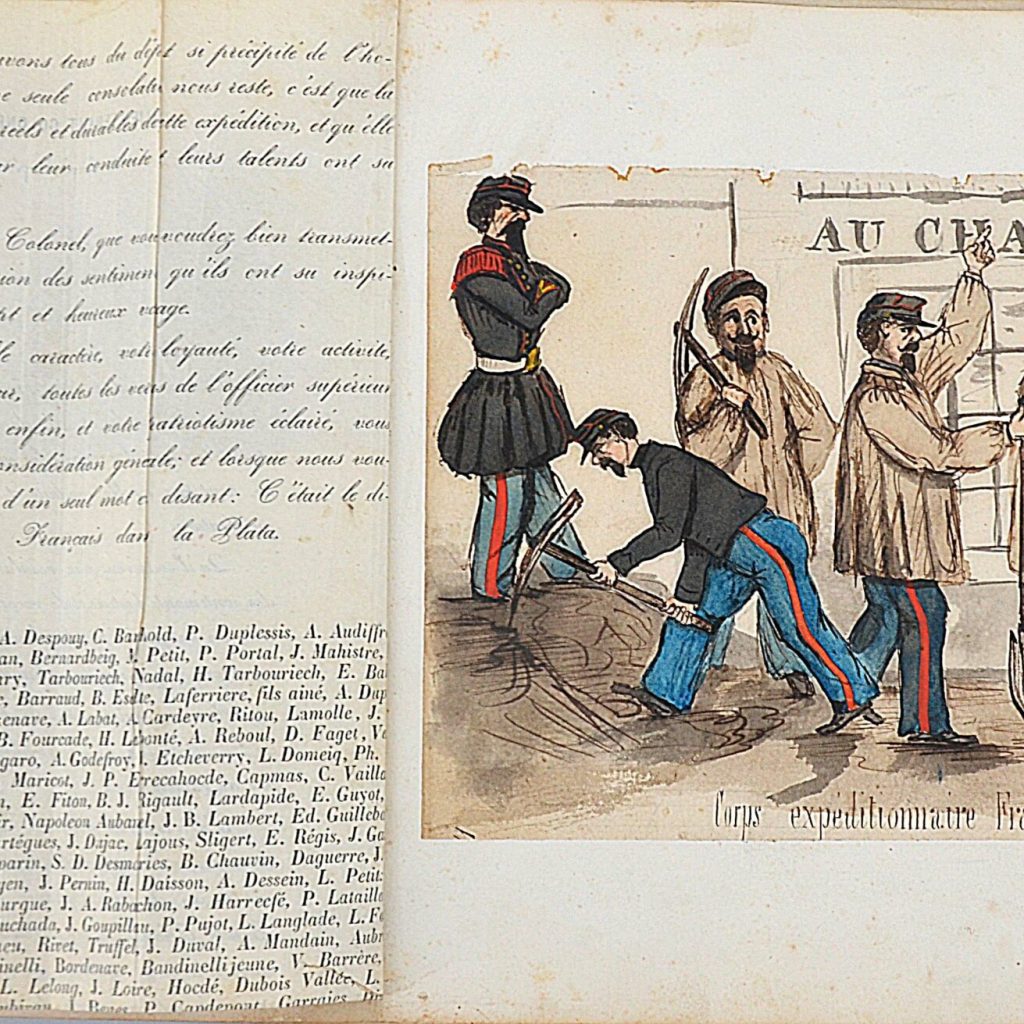 tous du dép t si précipité de l'ho-
e seule consolati nous reste, c'est que la
réels et durables de cette expédition, et qu'elle
r leur conduite t leurs talents ont su
Colonel, que vous voudrez bien transmet-
sion des sentimen qu'ils ont su inspi-
et heureux voyage.
le caractère, votre loyauté, votre activité,
toutes les de l'officier supérieur
enfin, et votre patriotisme éclairé, vous
onsidération générale; et lorsque nous vou-
d'un seul mot e disant: C'était le di-
Français dans la Plata.
A. Despouy, C. Barhold, P. Duplessis, A. Audiffr
an, Bernardbeig, M. Petit, P. Portal, J. Mahistre,
ry, Tarbouriech, Nadal, H. Tarbouriech, E. Ba
Barraud, B. Estte, Laferriere, fils ainé, A. Dup
enave, A. Labat, A. Cardeyre, Ritou, Lamolle, J.
B. Fourcade, H. Lebonté, A. Reboul, D. Faget, V
garo, A. Godefroy, J. Etcheverry, L. Domeiq, Ph.
Maricot, J. P. Errecahocde, Capmas, C. Vailla
E. Fitou, B. J. Rigault, Lardapide, E. Guyot,
ir, Napoleon Aubanel, J. B. Lambert, Ed. Guillebo
rtégues, J. Dajac, Lajous, Sligert, E. Régis, J. Ga
parin, S. D. Desmaries, B. Chauvin, Daguerre, J.
yen, J. Pernin, H. Daisson, A. Dessein, L. Petit
urgue, J. A. Rabachon, J. Harrecfé, P. Lataill
uchada, J. Goupillau, P. Pujot, L. Langlade, L. F
eu, Rivet, Truffel, J. Duval, A. Mandain, Aubr
inelli, Bordenave, Bandinelli jeune, V. Barrère,
L. Lelong, J. Loire, Hocdé, Dubois Vallée, L.
P. Capdepont, Garraies
AU CHA
Corps expéditionnaire Fra